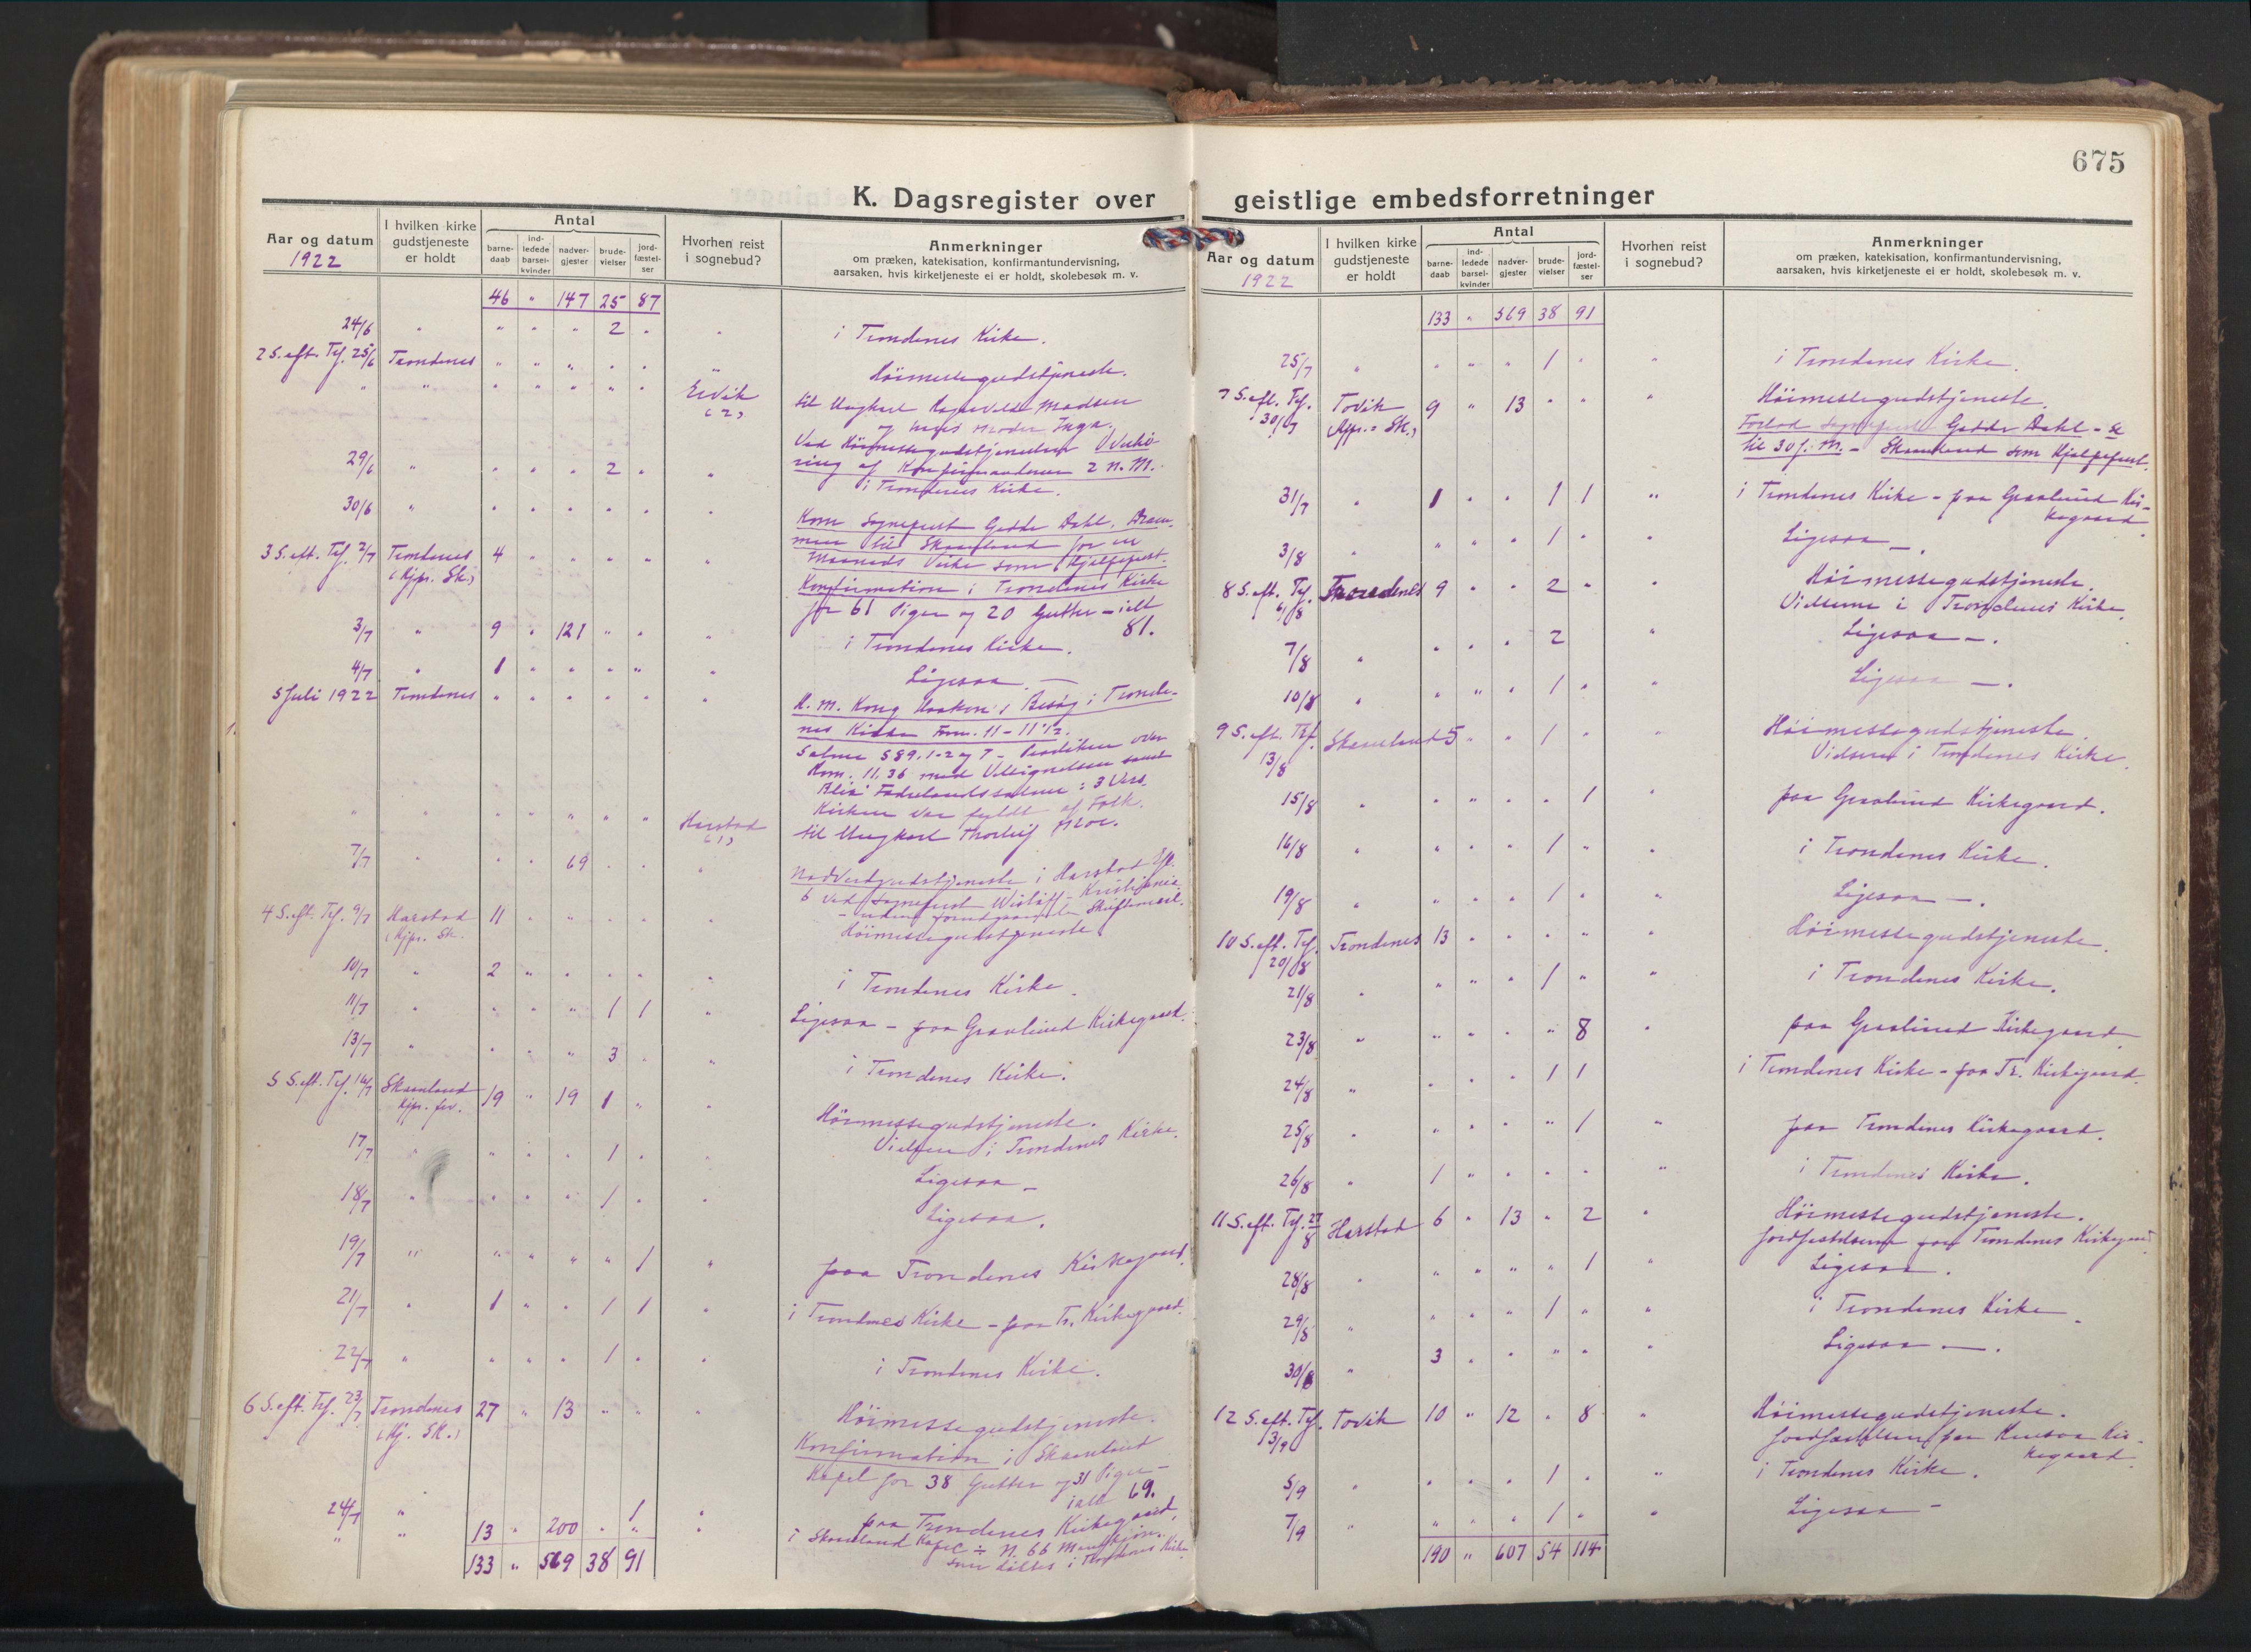 675
K. Dagsregister over geistlige embedsforretninger
Aar og datum
1922
I hvilken kirke
gudstjeneste
er holdt
Antal
barne-
daab
ind-
ledede
barsel-
kvinder
nadver-
gjester
brude-
vielser
jord-
fæstel-
ser
Hvorhen reist
i sognebud?
Anmerkninger
om præken, katekisation, konfirmantundervisning,
aarsaken, hvis kirketjeneste ei er holdt, skolebesøk m. v.
46 " 147 25 87
24/6 " " " " 2 " " i Trondenes Kirke.
2 S. eft. Trf. 25/6 Trondenes " " " " " " Höimessegudstjeneste.
" " " " " " " Ervik til Ungkarl Madsen
(2) og hans Moder Inga.
Ved Höimessegudstjenesten
29/6 " " " " 2 " " ring af Konfirmanderne 2 N. M.
i Trondenes Kirke.
30/6 " " " " " " " Kom Sognepræst Gedde Dahl, Dram-
men til Skaanland for en
3 S. eft. Trf. 2/7 Trondenes 4 " " " " " Maaneds Virke som Hjelpepræst.
(Hjpr. Sk.) Konfirmation i Trondenes Kirke
for 61 Piger og 20 Gutter - ialt
81.
3/7 " 9 " 121 " " " i Trondenes Kirke.
4/7 " 1 " " " " " Ligesaa —
5 Juli 1922 Trondenes " " " " " " H. M. Kong Haakon's Besøg i Tronde-
nes Kirke Form. 11 - 11 1/2.
Salme 589. 1-2 og 7 - Prædiken over
Rom. 11, 36 med Velsignelsen samt
Blix' Fædrelandssalme: 3 Vers.
Kirken var fyldt af Folk.
" " " " " " " Harstad til Ungkarl Thorleif Moe.
(1)
7/7 " " " 69 " " " Nadverdgudstjeneste i Harstad Eft.
6 ved Sognepræst Wisløff - Kristiania
- uden forudgaaende Skriftemaal.
4 S. eft. Trf. 9/7 Harstad 11 " " " " " Höimessegudstjeneste.
(Hjpr. Sk.
10/7 " 2 " " " " " i Trondenes Kirke.
11/7 " " " " 1 1 " Ligesaa - paa Gravlund Kirkegaard.
13/7 " " " " 3 " " i Trondenes Kirke.
5 S. eft. Trf. 16/7 Skaanland 19 " 19 1 " " Höimessegudstjeneste.
Hjpr. Vielsen i Trondenes Kirke.
17/7 " " " " 1 " " Ligesaa -
18/7 " " " " 1 " " Ligesaa.
19/7 " " " " " 1 " paa Trondenes Kirkegaard.
21/7 " 1 " " 1 1 " i Trondenes Kirke - paa Tr. Kirkegaard.
22/7 " " " " 1 " " i Trondenes Kirke.
6 S. eft. Trf. 23/7 Trondenes 27 " 13 " " " Höimessegudstjeneste.
(Hj. Sk.) Konfirmation i Skaanland
Kapel for 38 Gutter og 31 Piger -
ialt 69.
24/7 " 1 " paa Trondenes Kirkegaard,
" " 13 " 200 " " " i Skaanland Kapel ÷ N. 66 Mandkjøn.
som døbtes i Trondenes Kirke.
133 " 569 38 91
Aar og datum
1922
I hvilken kirke
gudstjeneste
er holdt
Antal
barne-
daab
ind-
ledede
barsel-
kvinder
nadver-
gjester
brude-
vielser
jord-
fæstel-
ser
Hvorhen reist
i sognebud?
Anmerkninger
om præken, katekisation, konfirmantundervisning,
aarsaken, hvis kirketjeneste ei er holdt, skolebesøk m. v.
133 " 569 38 91
25/7 " " " " 1 " " i Trondenes Kirke.
7 S. eft. Trf. Tovik 9 " 13 " " " Höimessegudstjeneste.
30/7 Forlod Sognepræst Gedde Dahl
til 30 f. M. - Skaanland som Hjelpepræst.
31/7 " 1 " " 1 1 " i Trondenes Kirke - paa Gravlund Kir-
kegaard.
3/8 " " " " 1 " " Ligesaa —.
8 S. eft. Trf. Trondenes 9 " " 2 " " Höimessegudstjeneste.
6/8 Vielserne i Trondenes Kirke.
7/8 " " " " 2 " Ligesaa —.
10/8 " " " " 1 " " Ligesaa —.
9 S. eft. Trf. Skaanland 5 " " 1 " " Höimessegudstjeneste.
13/8 Vielsen i Trondenes Kirke.
15/8 " " " " " 1 " paa Gravlund Kirkegaard.
16/8 " " " " 1 " " i Trondenes Kirke.
19/8 " " " " 1 " " Ligesaa —.
10 S. eft. Trf. Trondenes 13 " " " " " Höimessegudstjeneste.
20/8
21/8 " " " " 1 " " i Trondenes Kirke.
23/8 " " " " " 8 " paa Gravlund Kirkegaard.
24/8 " " " " 1 1 i Trondenes Kirke - paa Tr. Kirkegaard.
25/8 " " " " " 1 " paa Trondenes Kirkegaard.
26/8 " 1 " " " " " i Trondenes Kirke.
11 S. eft. Trf. 27/8 Harstad 6 " 13 " 2 " Höimessegudstjeneste.
Jordfæstelserne paa Trondenes Kirkegaard
28/8 " " " " " 1 " Ligesaa.
29/8 " " " " 1 " " i Trondenes Kirke.
30/8 " 3 " " " " " Ligesaa —.
12 S. eft. Trf. Tovik 10 " 12 " 8 " Höimessegudstjeneste.
3/9 Jordfæstelsen paa Kir-
kegaard.
5/9 " " " " 1 " " i Trondenes Kirke.
7/9 " " " " 1 " " Ligesaa -
190 " 607 54 114